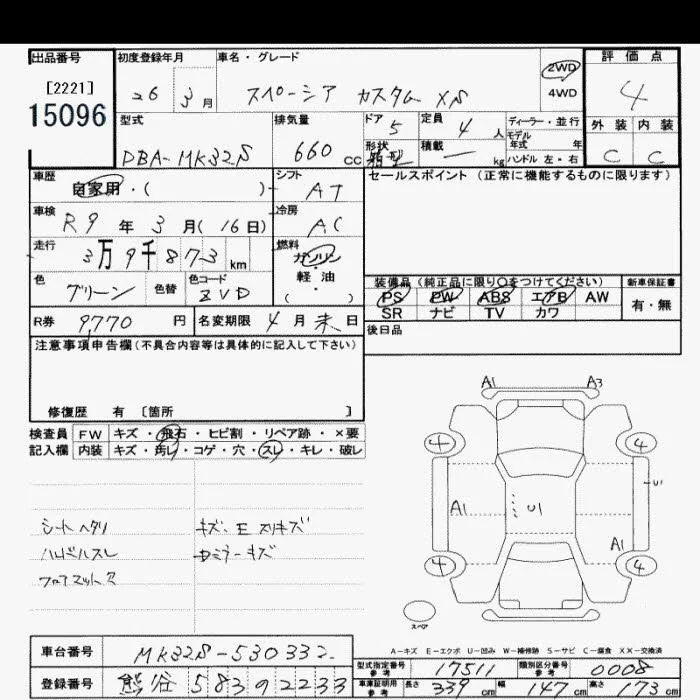 出品番号 初度登録年月 車名・グレード 評価点
[2221] 26 3月 スペーシア カスタム XS 2WD 4
15096 4WD
型式 排気量 ドア 5 定員 4人 ディーラー・並行 外装 内装
モデル年式 年
DBA-MK32S 660cc 形状 箱型 積載 ― kg ハンドル 左・右 C C
車歴 シフト セールスポイント (正常に機能するものに限ります)
自家用・( ) AT
車検 冷房
R9年 3月(16日) AC
走行 燃料
3万9千873km ガソリン
色 色替 色コード 軽・油 装備品(純正品に限り○をつけてください) 新車保証書
グリーン ZVD ( ) PS PW ABS エアB AW 有・無
SR ナビ TV カワ
R券 9,770円 名変期限 4月末日 後日品
注意事項申告欄(不具合内容等は具体的に記入して下さい)
修復歴 有 [箇所 ]
検査員 FW キズ・飛石・ヒビ割・リペア跡・×要
記入欄 内装 キズ・汚レ・コゲ・穴・スレ・キレ・破レ
A1 A3
4 4
U1
A1 U1
A1
4 4
スペア
シートヘタリ キズ、E スリキズ
ハンドルスレ
フロアマットズ
A-キズ E-エクボ U-凹み W-補修跡 S-サビ C-腐食 XX-交換済
車台番号 MK32S-530332
型式指定番号 参考 17511 類別区分番号 参考 0008
登録番号 熊谷 583 の 2233
車庫証明用 参考 長さ 339cm 幅 147cm 高さ 173cm